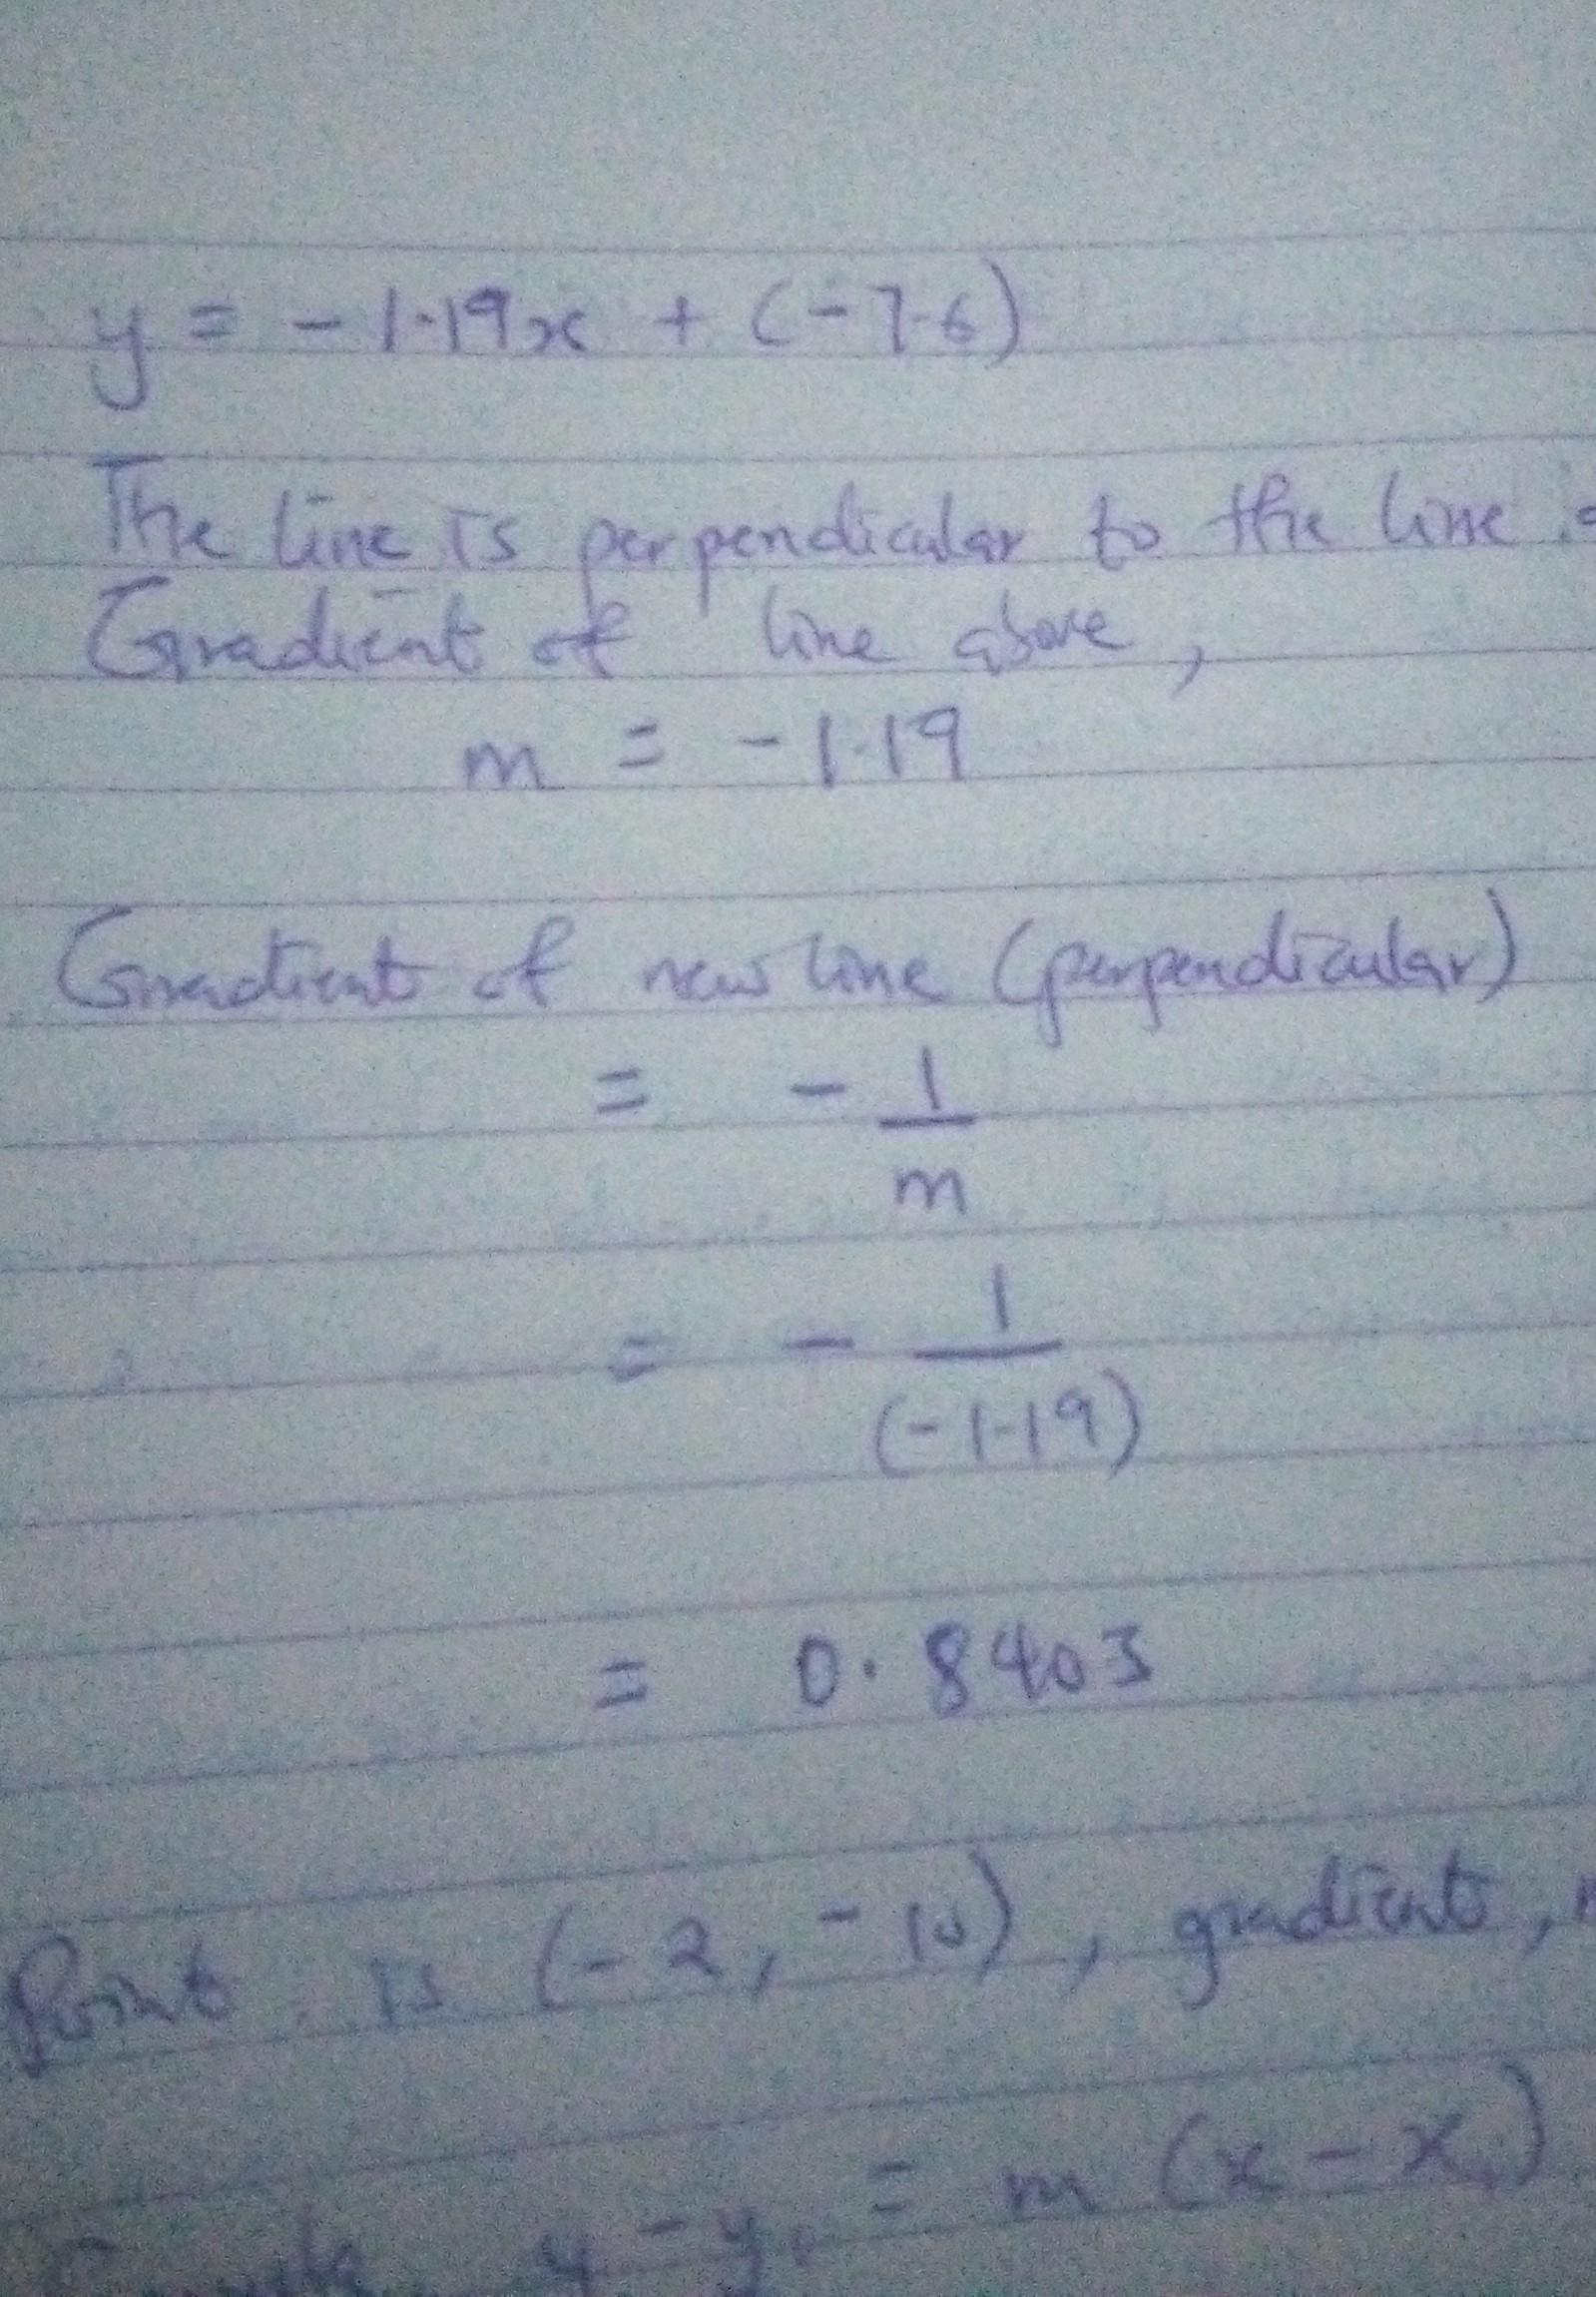 y = -1.19x + (-7.6)
The line is perpendicular to the line
Gradient of line above,
m = -1.19
Gradient of new line (perpendicular)
= - 1/m
= - 1/(-1.19)
= 0.8403
Point is (-2, -10), gradient,
y - y₁ = m (x - x₁)